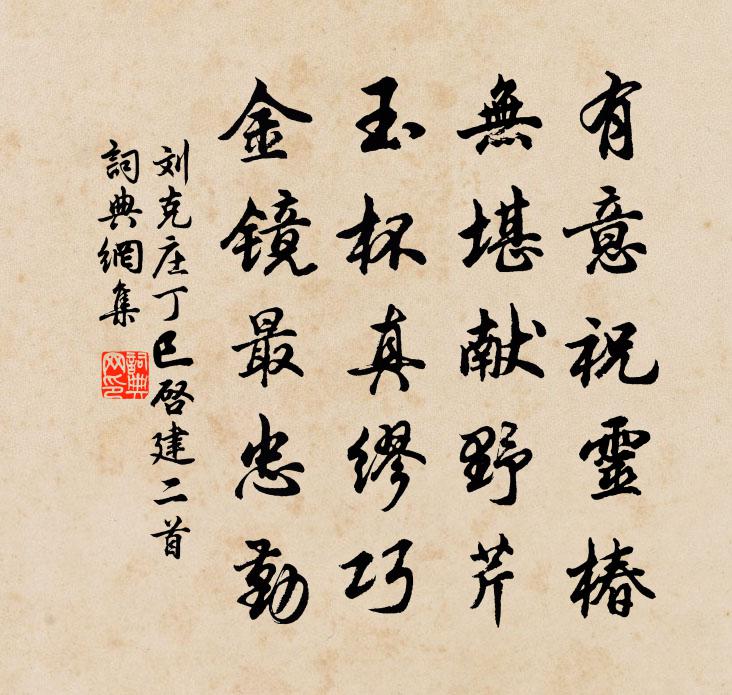 有意祝靈椿
無堪献野芹
玉杯真繆巧
金镜最忠勤
刘克庄丁巳啓建二首
詞典網集
詞典网印